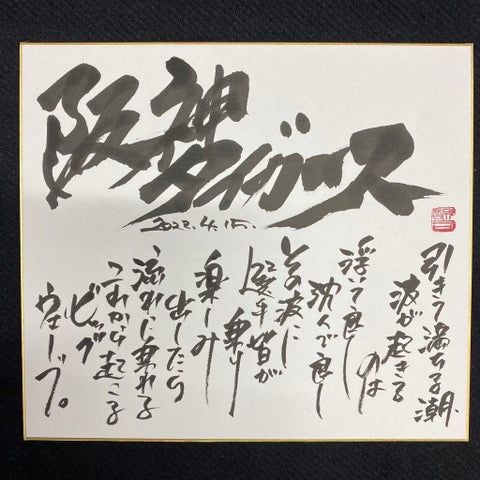 阪神
タイガース
2022.4.15.
引きつ満ちる潮
波が起きる
のは
浮いて良し
沈んで良し
その波に
選手皆が
乗り
楽しみ
出したら
流れに乗れる
これから起こる
ビッグ
ウェーブ。